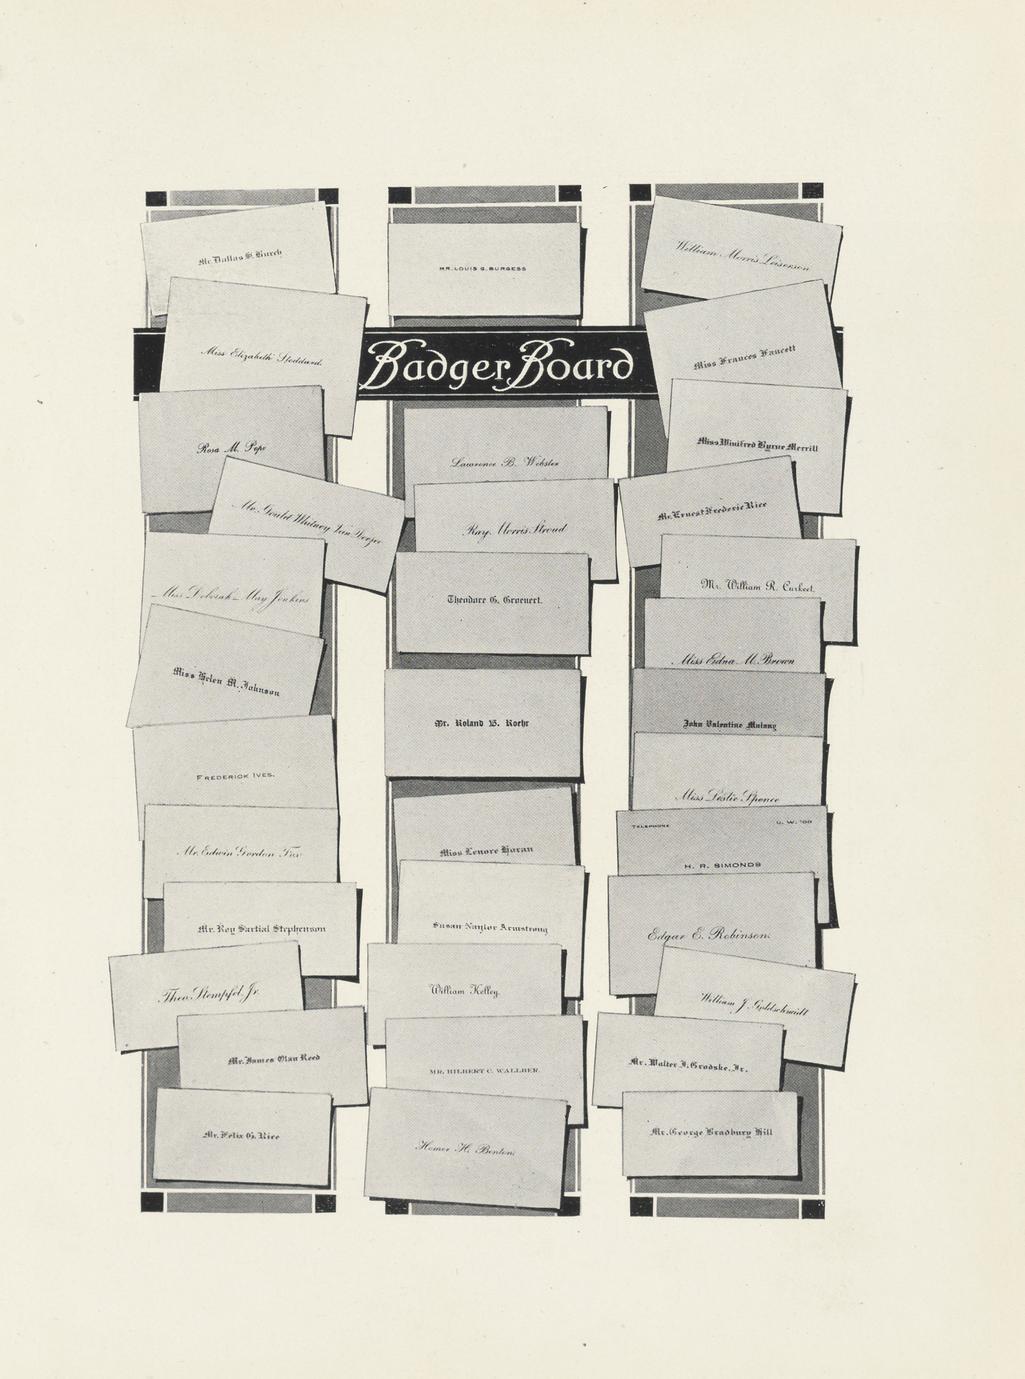 Mr. Dallas S. Burch
Miss Elizabeth Stoddard.
Rosa M. Pepe
Mr. Gould Whitney Van Derzee
Miss Deborah May Jenkins
Miss Helen M. Johnson
FREDERICK IVES.
Mr. Edwin Gordon Fox
Mr. Roy Sartial Stephenson
Theo Stempfel, Jr.
Mr. James Olan Reed
Mr. Felix G. Rice
MR. LOUIS G. BURGESS
Badger Board
Lawrence B. Webster
Ray Morris Stroud
Theodore G. Groenert.
Mr. Roland B. Roehr
Miss Lenore Horan
Susan Naylor Armstrong
William Kelley.
MR. HILBERT C. WALLBER.
Homer H. Benton.
William Morris Leiserson
Miss Frances Faucett
Miss Winifred Byrne Merrill
Mr. Ernest Frederic Rice
Mr. William R. Curkeet.
Miss Edna M. Brown
John Valentine Mulany
Miss Leslie Spence
TELEPHONE U. W. '09
H. R. SIMONDS
Edgar E. Robinson.
William J. Goldschmidt
Mr. Walter J. Grodske, Jr.
Mr. George Bradbury Hill